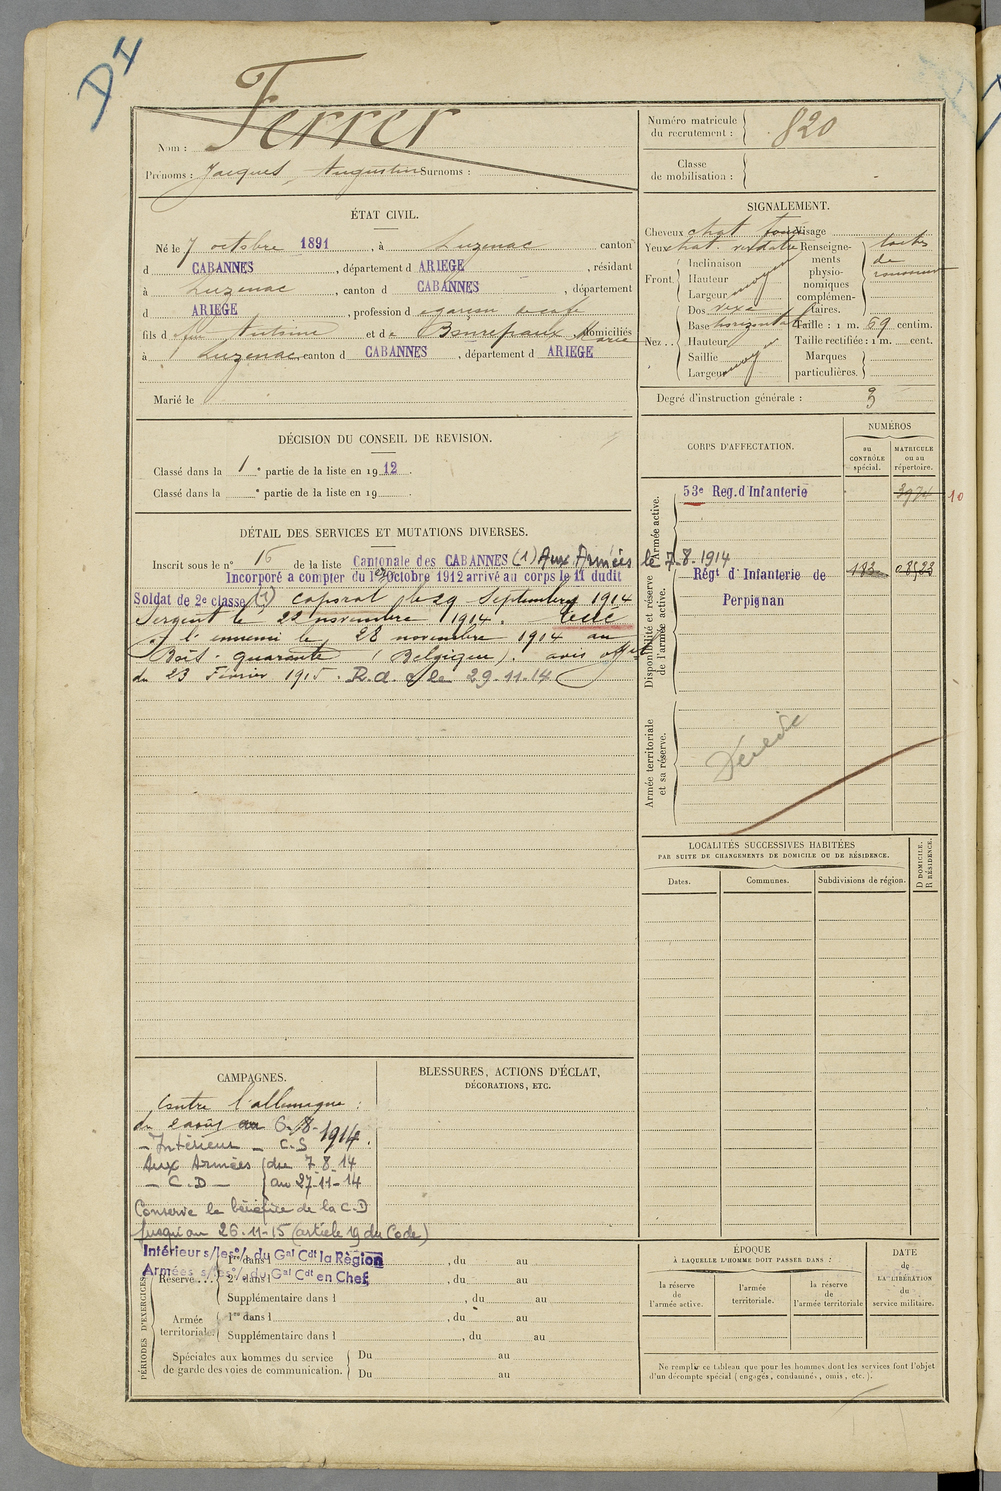 DI
Ferrer
Nom :
Prénoms : Jacques, Augustin Surnoms :
Numéro matricule du recrutement : 820
Classe de mobilisation :
ÉTAT CIVIL.
Né le 7 octobre 1891, à Luzenac canton
d CABANNES, département d ARIEGE, résidant
à Luzenac, canton d CABANNES, département
d ARIEGE, profession d garçon de café
fils d feu Antoine et de Bonrepaux Marie domiciliés
à Luzenac, canton d CABANNES, département d ARIEGE
Marié le
SIGNALEMENT.
Cheveux chat foncé Visage
Yeux chat. verdatre
Front Inclinaison
Hauteur
Largeur moyen
Nez Dos vexe
Base horizontale
Hauteur
Saillie
Largeur moyen
Renseignements physionomiques complémentaires.
taches
de
rousseur
Taille : 1 m. 69 centim.
Taille rectifiée : 1 m. cent.
Marques particulières.
Degré d'instruction générale : 3
DÉCISION DU CONSEIL DE REVISION.
Classé dans la 1e partie de la liste en 1912.
Classé dans la e partie de la liste en 19 .
CORPS D'AFFECTATION.
NUMÉROS
au CONTRÔLE spécial.
MATRICULE ou au répertoire.
Armée active.
53e Reg. d'Infanterie
10
Disponibilité et réserve de l'armée active.
Régt d'Infanterie de
Perpignan
Armée territoriale et sa réserve.
Décédé
DÉTAIL DES SERVICES ET MUTATIONS DIVERSES.
Inscrit sous le n° 16 de la liste Cantonale des CABANNES (1) Aux Armées le 7-8-1914
Incorporé a compter du 10 Octobre 1912 arrivé au corps le 11 dudit
Soldat de 2e classe (1) Caporal le 29 Septembre 1914
Sergent le 22 novembre 1914. Tué
à l'ennemi le 28 novembre 1914 au
Bois-quarante (Belgique). avis offel
du 23 Février 1915. R.d.c le 29-11-14
LOCALITÉS SUCCESSIVES HABITÉES
PAR SUITE DE CHANGEMENTS DE DOMICILE OU DE RÉSIDENCE.
Dates.
Communes.
Subdivisions de région.
D DOMICILE.
R RÉSIDENCE.
CAMPAGNES.
Contre l'allemagne :
du 2 août au 6-8-1914.
– Intérieur – C.S
Aux Armées du 7-8-14
– C.D – au 27-11-14
Conserve le bénéfice de la C.D
jusqu'au 26-11-15 (article 19 du Code)
Intérieur s/les o/ du Gal Cdt la Région
Armées s/les o/ du Gal Cdt en Chef
BLESSURES, ACTIONS D'ÉCLAT,
DÉCORATIONS, ETC.
PÉRIODES D'EXERCICES.
Réserve....
1re dans l , du au
2e dans l , du au
Supplémentaire dans l , du au
Armée territoriale.
1re dans l , du au
Supplémentaire dans l , du au
Spéciales aux hommes du service
de garde des voies de communication.
Du au
Du au
ÉPOQUE
À LAQUELLE L'HOMME DOIT PASSER DANS :
la réserve de l'armée active.
l'armée territoriale.
la réserve de l'armée territoriale
DATE de LA LIBÉRATION du service militaire.
Ne remplir ce tableau que pour les hommes dont les services font l'objet
d'un décompte spécial (engagés, condamnés, omis, etc.).